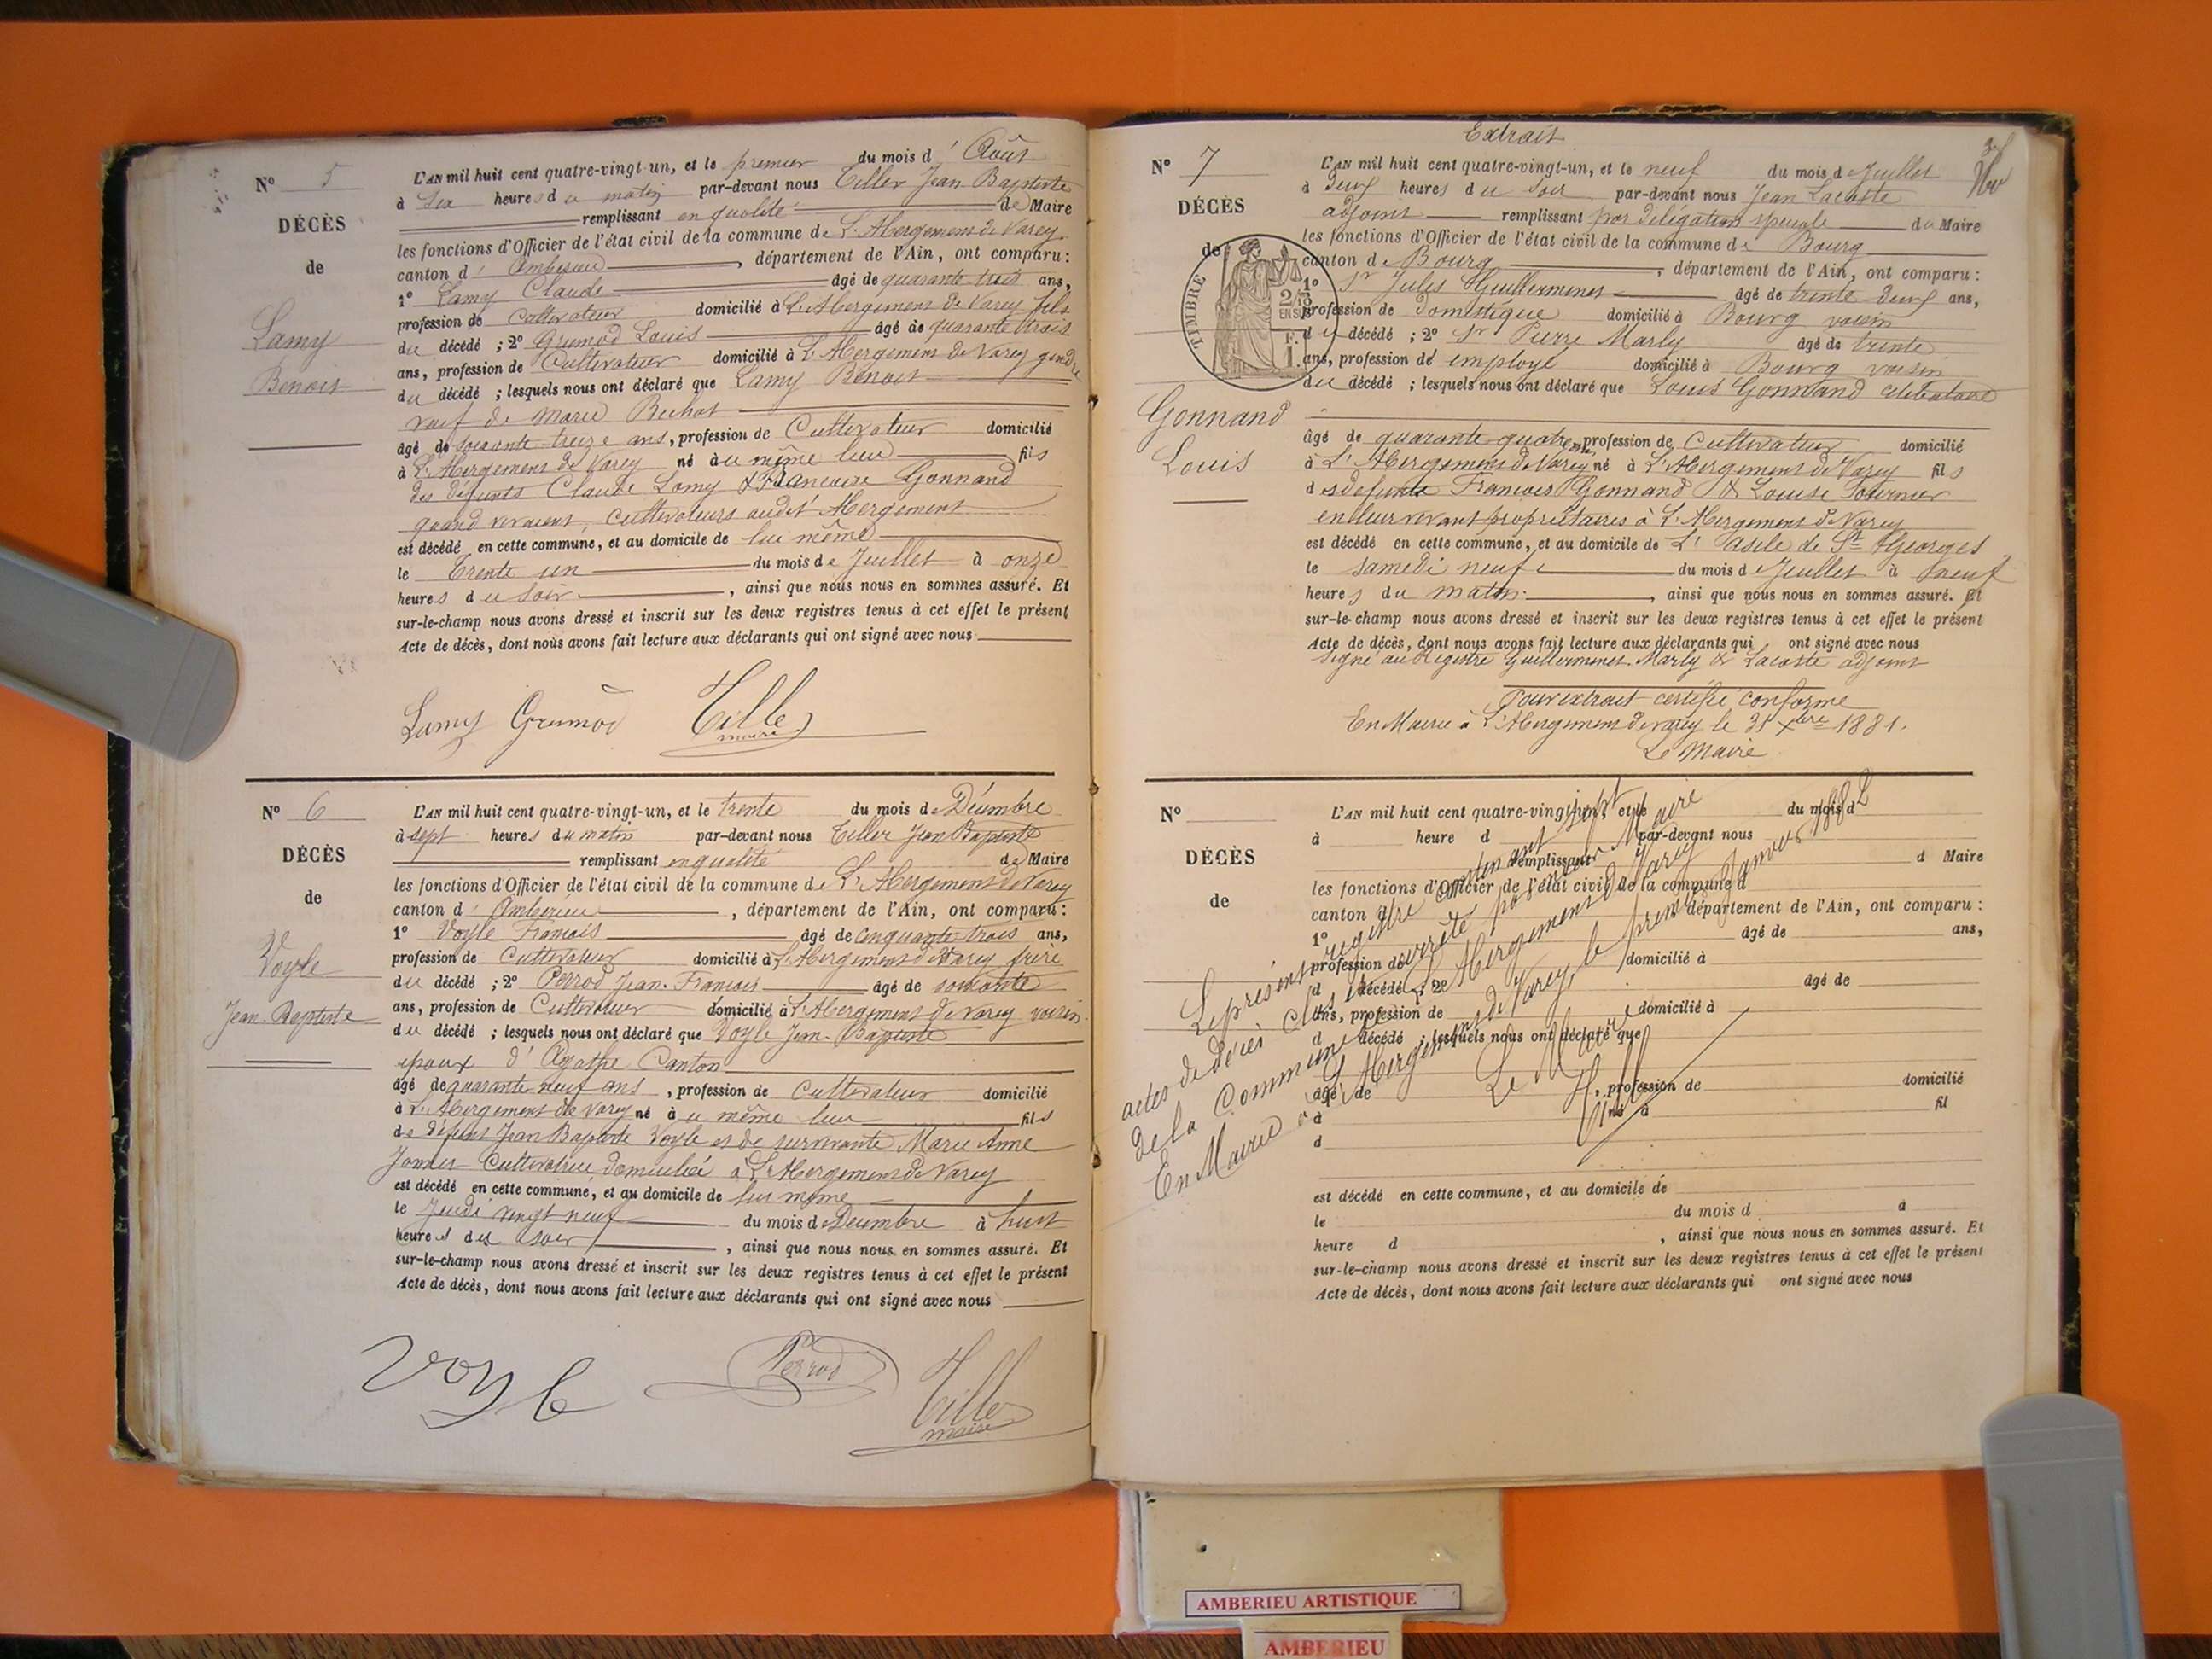 N° 5
DÉCÈS
de
Lamy
Benoit
L'AN mil huit cent quatre-vingt-un, et le premier du mois d'Août
à six heures du matin par-devant nous Tiller Jean Baptiste
remplissant en qualité de Maire
les fonctions d'Officier de l'état civil de la commune de L'Abergement de Varey
canton d'Ambérieu, département de l'Ain, ont comparu:
1° Lamy Claude âgé de quarante trois ans,
profession de Cultivateur domicilié à L'Abergement de Varey fils
du décédé ; 2° Grumod Louis âgé de quarante trois
ans, profession de Cultivateur domicilié à L'Abergement de Varey gendre
du décédé ; lesquels nous ont déclaré que Lamy Benoit
veuf de Marie Buhot
âgé de soixante treize ans, profession de Cultivateur domicilié
à L'Abergement de Varey né au même lieu fils
des défunts Claude Lamy & Francoise Gonnand
quand vivaient, cultivateurs audit Abergement
est décédé en cette commune, et au domicile de lui même
le Trente un du mois de Juillet à onze
heures du soir, ainsi que nous nous en sommes assuré. Et
sur-le-champ nous avons dressé et inscrit sur les deux registres tenus à cet effet le présent
Acte de décès, dont nous avons fait lecture aux déclarants qui ont signé avec nous
Lamy Grumod Tiller
maire
N° 6
DÉCÈS
de
Voyle
Jean-Baptiste
L'AN mil huit cent quatre-vingt-un, et le trente du mois de Décembre
à sept heures du matin par-devant nous Tiller Jean Baptiste
remplissant en qualité de Maire
les fonctions d'Officier de l'état civil de la commune de L'Abergement de Varey
canton d'Ambérieu, département de l'Ain, ont comparu:
1° Voyle Francois âgé de cinquante trois ans,
profession de Cultivateur domicilié à L'Abergement de Varey frère
du décédé ; 2° Perrod Jean-Francois âgé de soixante
ans, profession de Cultivateur domicilié à L'Abergement de Varey voisin
du décédé ; lesquels nous ont déclaré que Voyle Jean-Baptiste
époux d'Agathe Canton
âgé de quarante neuf ans, profession de Cultivateur domicilié
à L'Abergement de Varey né au même lieu fils
de défunt Jean Baptiste Voyle et de survivante Marie Anne
Cultivatrice domiciliée à L'Abergement de Varey
est décédé en cette commune, et au domicile de lui même
le Jeudi vingt neuf du mois de Décembre à huit
heures du soir, ainsi que nous nous en sommes assuré. Et
sur-le-champ nous avons dressé et inscrit sur les deux registres tenus à cet effet le présent
Acte de décès, dont nous avons fait lecture aux déclarants qui ont signé avec nous
Voyle Perrod Tiller
maire
Extrait
N° 7
DÉCÈS
de
TIMBRE
Gonnand
Louis
L'AN mil huit cent quatre-vingt-un, et le neuf du mois de Juillet
à deux heures du soir par-devant nous Jean Lacoste
adjoint remplissant par délégation spéciale du Maire
les fonctions d'Officier de l'état civil de la commune de Bourg
canton de Bourg, département de l'Ain, ont comparu:
1° Sr Jules Guillerminet âgé de trente deux ans,
profession de domestique domicilié à Bourg voisin
du décédé ; 2° Sr Pierre Marly âgé de trente
ans, profession de employé domicilié à Bourg voisin
du décédé ; lesquels nous ont déclaré que Louis Gonnand célibataire
âgé de quarante quatre ans profession de Cultivateur domicilié
à L'Abergement de Varey né à L'Abergement de Varey fils
des defunts Francois Gonnand & Louise Fournier
en leur vivant propriétaires à L'Abergement de Varey
est décédé en cette commune, et au domicile de L'asile de St Georges
le samedi neuf du mois de Juillet à neuf
heures du matin, ainsi que nous nous en sommes assuré. Et
sur-le-champ nous avons dressé et inscrit sur les deux registres tenus à cet effet le présent
Acte de décès, dont nous avons fait lecture aux déclarants qui ont signé avec nous
signé au Registre Guillerminet Marly & Lacoste adjoint
Pour extrait certifié conforme
En Mairie à L'Abergement de Varey le 31 Xbre 1881.
Le Maire
N°
DÉCÈS
de
L'AN mil huit cent quatre-vingt-un, et le du mois d
à heure d par-devant nous
remplissant d Maire
les fonctions d'Officier de l'état civil de la commune d
canton d, département de l'Ain, ont comparu:
1° âgé de ans,
profession de domicilié à
d décédé ; 2° âgé de
ans, profession de domicilié à
d décédé ; lesquels nous ont déclaré que
âgé de, profession de domicilié
à né à fil
d
est décédé en cette commune, et au domicile de
le du mois d à
heure d, ainsi que nous nous en sommes assuré. Et
sur-le-champ nous avons dressé et inscrit sur les deux registres tenus à cet effet le présent
Acte de décès, dont nous avons fait lecture aux déclarants qui ont signé avec nous
Le présent registre contenant sept
actes de décès clos par nous Maire
de la Commune de L'Abergement de Varey
En Mairie à L'Abergement de Varey, le premier Janvier 1882
Le Maire
AMBERIEU ARTISTIQUE
AMBERIEU